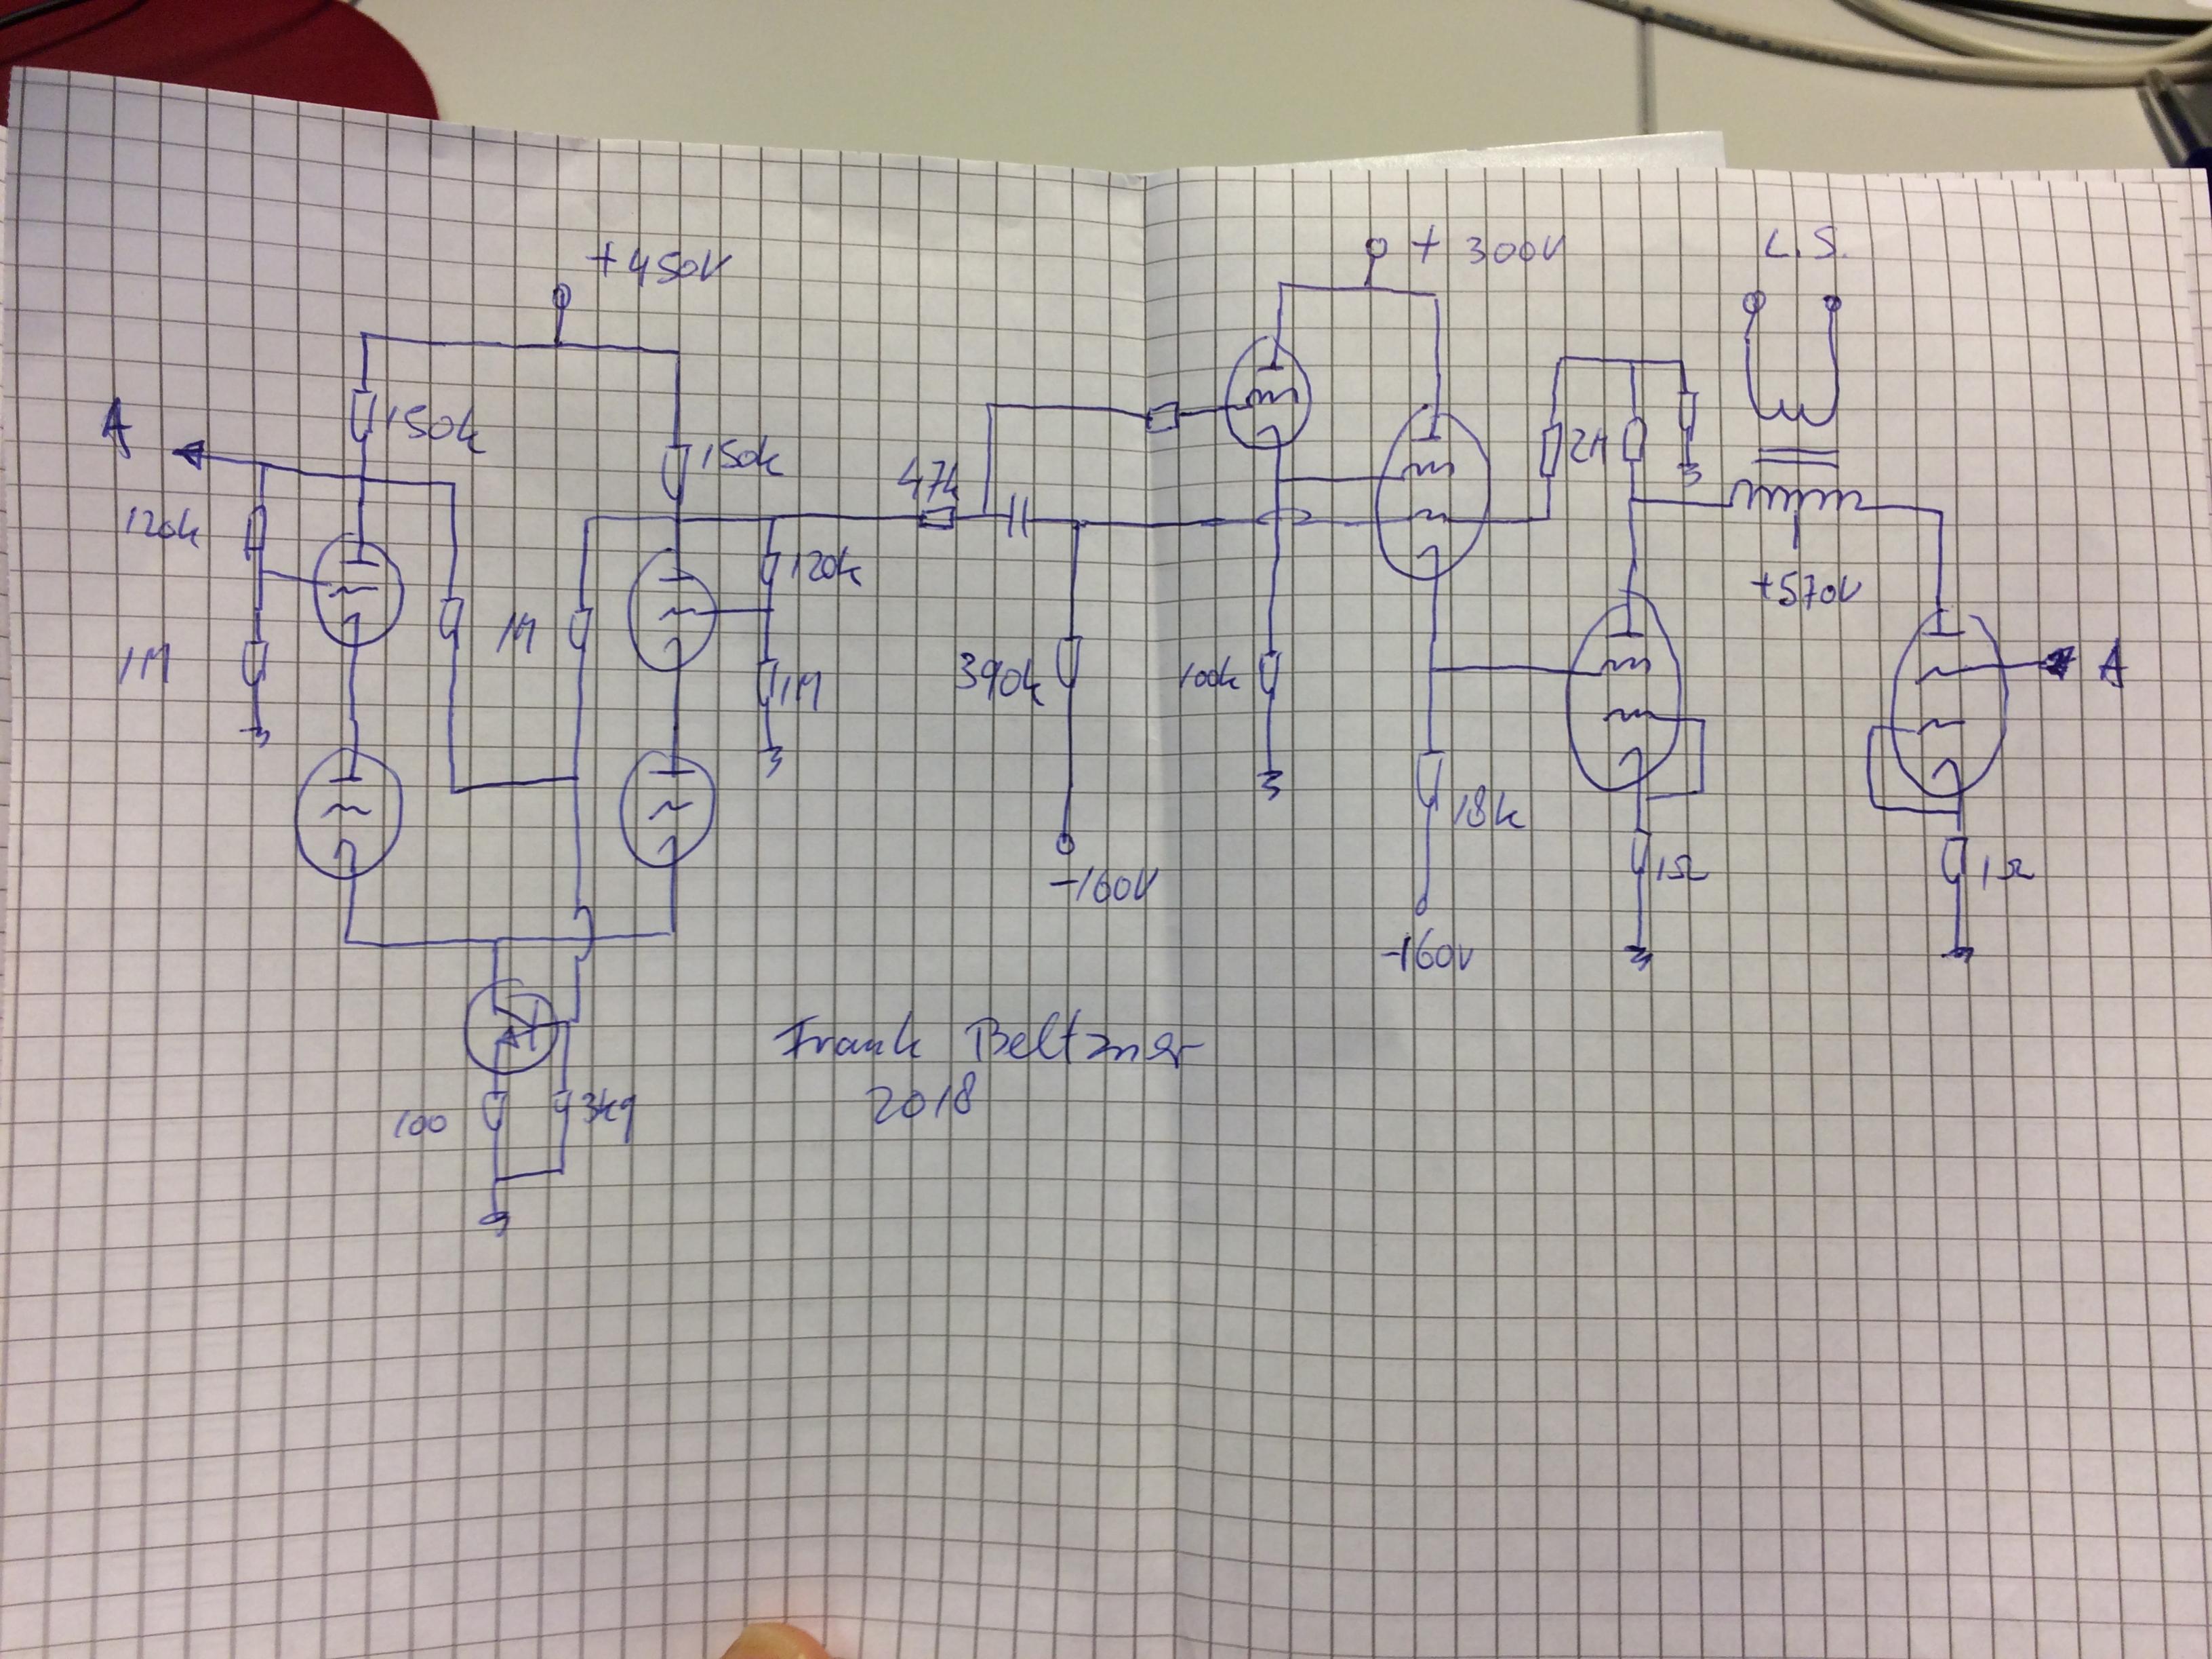 +450V
+ 300V
L.S.
A
150k
150k
47k
2M
120k
120k
+570V
1M
1M
1M
390k
100k
A
18k
1Ω
1Ω
-160V
-160V
Frank Beltzner
2018
100
3k9